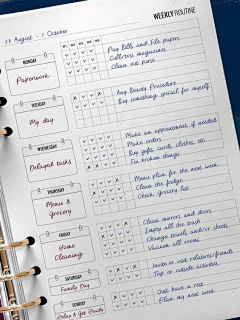 WEEKLY ROUTINE
28 August - 1 October
MONDAY
Paperwork
Pay Bills and File papers
Cull/toss magazines
Clean out purse
TUESDAY
My day
Any Beauty Procedure
Buy something special for myself
WEDNESDAY
Delayed tasks
Make an appointment if needed
Make orders
Buy gifts, cards, clothes, etc.
Fix broken things
THURSDAY
Menu &
Grocery
Menu plan for the next week
Clean the fridge
Check grocery list
FRIDAY
Home
Cleaning
Clean mirrors and doors
Empty all the trash
Change towels and/or sheets
Vacuum all rooms
SATURDAY
Family Day
Invite or visit relatives/friends
Trip or outside activities
SUNDAY
Relax & Get Ready
Just have a rest
Plan my next week